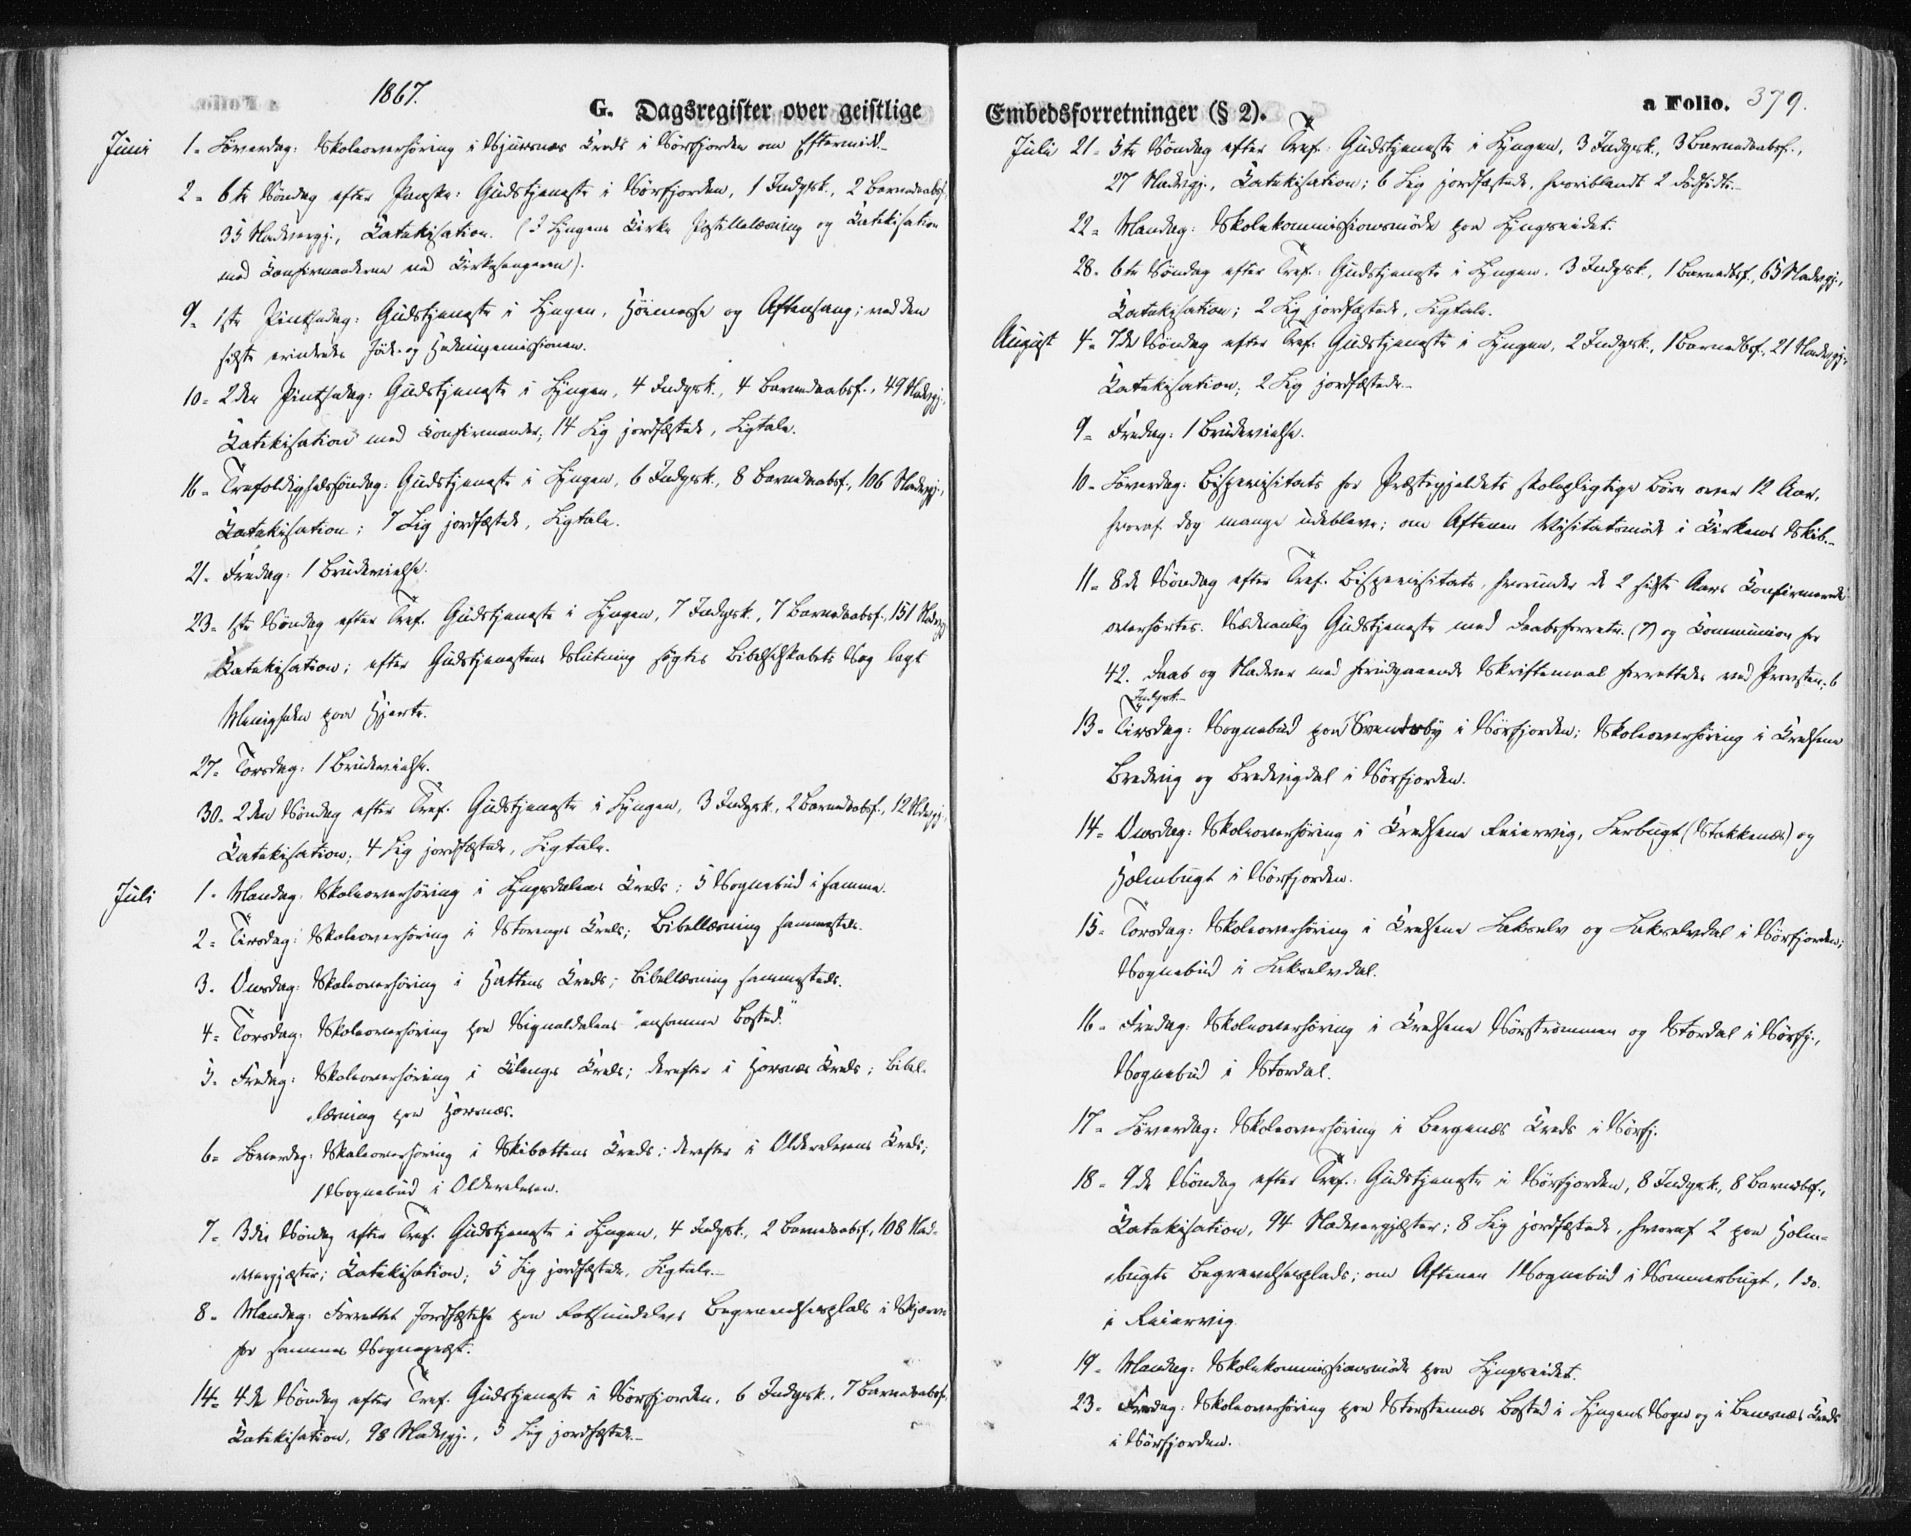 1867.
G. Dagsregister over geistlige
Juni 1. Løverdag: Skoleoverhøring i Kjusnæs Kreds i Sørfjorden om Eftermidd.
2. 6te Søndag efter Paaske: Gudstjeneste i Sørfjorden, 1 Indgsk., 2 Barnedaabsf.
35 Nadvergj., Katekisation. (I Lyngens Kirke Postillelæsning og Katekisation
med Confirmanderne ved Kirkesangeren).
9. 1ste Pintsedag: Gudstjeneste i Lyngen, Høimesse og Aftensang; ved den
sidste erindredes Jøde- og Hedningemissionen.
10. 2den Pintsedag: Gudstjeneste i Lyngen, 4 Indgsk., 4 Barnedaabsf., 49 Nadvgj.,
Katekisation med Confirmander; 14 Lig jordfæstede, Ligtale.
16. Trefoldighedssøndag: Gudstjeneste i Lyngen, 6 Indgsk., 8 Barnedaabsf., 106 Nadvgj.,
Katekisation; 7 Lig jordfæstede, Ligtale.
21. Fredag: 1 Brudevielse.
23. 1ste Søndag efter Tref. Gudstjeneste i Lyngen, 7 Indgsk., 7 Barnedaabsf., 151 Nadvgj.
Katekisation; efter Gudstjenestens Slutning søgtes Bibelselskabets Sag lagt
Menigheden paa Hjerte.
27. Torsdag: 1 Brudevielse.
30. 2den Søndag efter Tref. Gudstjeneste i Lyngen, 3 Indgsk., 2 Barnedaabsf., 12 Ndvgj.,
Katekisation; 4 Lig jordfæstede, Ligtale.
Juli 1. Mandag: Skoleoverhøring i Lyngsdalens Kreds; 5 Sognebud i samme.
2. Tirsdag: Skoleoverhøring i Storengs Kreds; Bibellæsning sammesteds.
3. Onsdag: Skoleoverhøring i Hattens Kreds; Bibellæsning sammesteds.
4. Torsdag: Skoleoverhøring paa Signaldalens "ensomme Bosted."
5. Fredag: Skoleoverhøring i Kilengs Kreds; derefter i Horsnæs Kreds; Bibel-
læsning paa Horsnæs.
6. Løverdag: Skoleoverhøring i Skibottens Kreds; derefter i Olderelvens Kreds;
1 Sognebud i Olderelven.
7. 3die Søndag efter Tref. Gudstjeneste i Lyngen, 4 Indgsk., 2 Barnedaabsf., 108 Nad-
vergjæster; Katekisation; 5 Lig jordfæstede, Ligtale.
8. Mandag: Forrettet Jordfæstelse paa Rotsunddelvs Begravelsesplads i Skjervø
for sammes Sognepræst.
14. 4de Søndag efter Tref. Gudstjeneste i Sørfjorden, 6 Indgsk., 7 Barnedaabsf.
Katekisation, 98 Nadvgj., 5 Lig jordfæstede.
Embedsforretninger (§ 2).
a Folio. 379.
Juli 21. 5te Søndag efter Tref.: Gudstjeneste i Lyngen, 3 Indgsk., 3 Barnedaabsf.,
27 Nadvgj., Katekisation; 6 Lig jordfæstede, hvoriblandt 2 dødfødte.
22. Mandag: Skolekommissionsmøde paa Lyngseidet.
28. 6te Søndag efter Tref.: Gudstjeneste i Lyngen. 3 Indgsk., 1 Barnedbsf., 65 Nadvgj.,
Katekisation; 2 Lig jordfæstede, Ligtale.
August 4. 7de Søndag efter Tref. Gudstjeneste i Lyngen, 2 Indgsk., 1 Barnedbsf., 21 Nadvgj.,
Katekisation; 2 Lig jordfæstede.
9. Fredag: 1 Brudevielse.
10. Løverdag: Bispevisitats for Præstegjeldets skolepligtige Børn over 12 Aar,
hvoraf dog mange udebleve; om Aftenen Visitatsmøde i Kirkens Skib.
11. 8de Søndag efter Tref. Bispevisitats, hvorunder de 2 sidste Aars Confirmerede
overhørtes. Sædvanlig Gudstjeneste med Daabsforretn. (7) og Communion for
42. Daab og Nadver med foregaaende Skriftemaal forrettedes ved Provsten; 6
Indgsk.
13. Tirsdag: Sognebud paa Svendsby i Sørfjorden; Skoleoverhøring i Kredsene
Bredvig og Bredvigdal i Sørfjorden.
14. Onsdag: Skoleoverhøring i Kredsene Reiervig, Lerbugt (Stakkenæs) og
Holmbugt i Sørfjorden.
15. Torsdag: Skoleoverhøring i Kredsene Lakselv og Lakselvdal i Sørfjorden;
Sognebud i Lakselvdal.
16. Fredag: Skoleoverhøring i Kredsene Sørstrømmen og Stordal i Sørfj.,
Sognebud i Stordal.
17. Løverdag: Skoleoverhøring i Bergenæs Kreds i Sørfj.
18. 9de Søndag efter Tref.: Gudstjeneste i Sørfjorden, 8 Indgsk., 8 Barnedbsf.,
Katekisation, 94 Nadvergjæster; 8 Lig jordfæstede, hvoraf 2 paa Holm-
bugts Begravelsesplads; om Aftenen 1 Sognebud i Sommerbugt, 1 do.
i Reiervig.
19. Mandag: Skolekommissionsmøde paa Lyngseidet.
23. Fredag: Skoleoverhøring paa Storstennæs Bosted i Lyngens Sogn og i Benesnæs Kreds
i Sørfjorden.